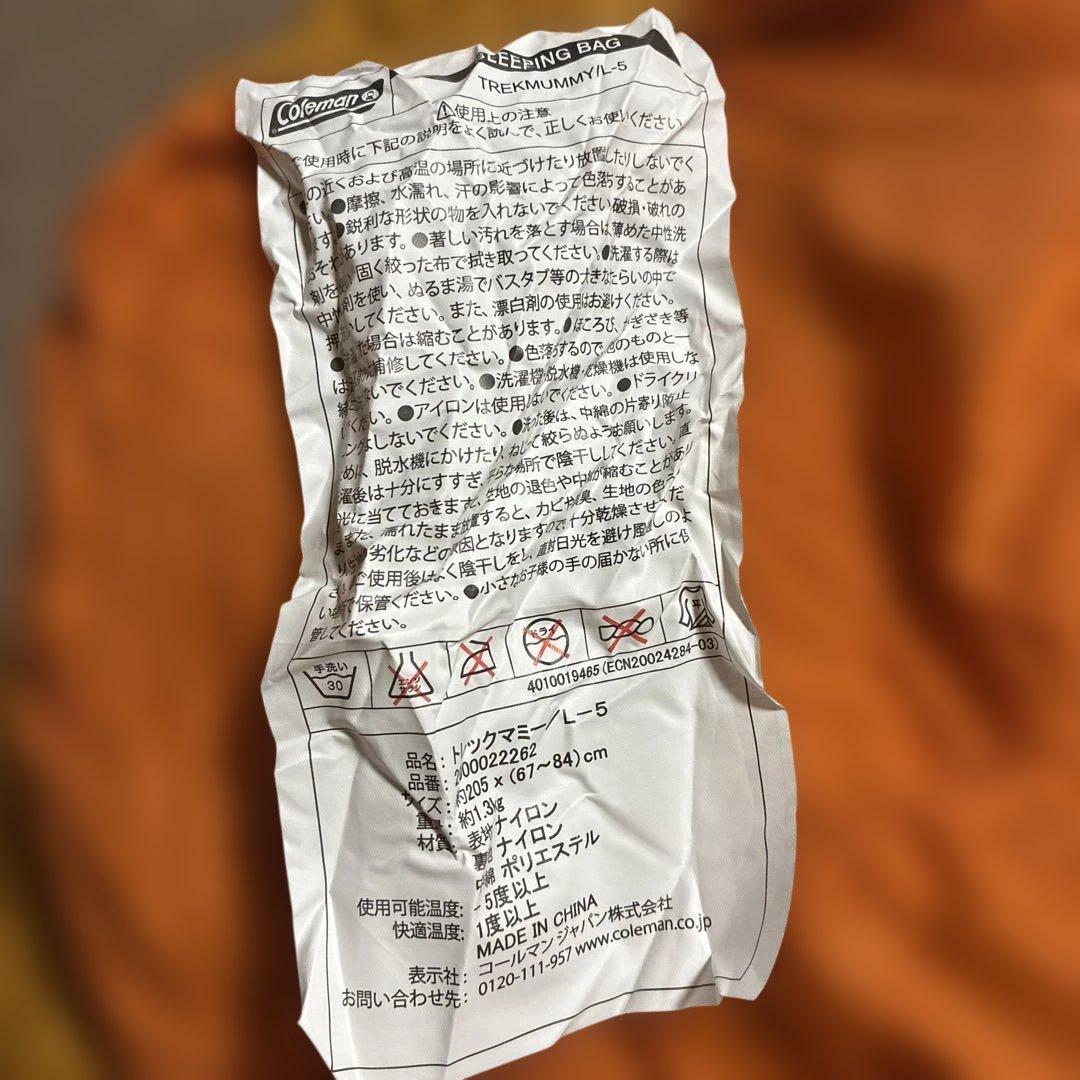 Coleman
SLEEPING BAG
TREKMUMMY/L-5
⚠使用上の注意
ご使用時に下記の説明をよく読んで、正しくお使いください
の近くおよび高温の場所に近づけたり放置したりしないでく
さい。●摩擦、水濡れ、汗の影響によって色落ちすることがあ
ます●鋭利な形状の物を入れないでください破損・破れの
おそれあります。●著しい汚れを落とす場合は薄めた中性洗
剤を 固く絞った布で拭き取ってください。●洗濯する際は
中性 剤を使い、ぬるま湯でバスタブ等の大きなたらいの中で
押し してください。また、漂白剤の使用はお避けください。
●濡れた場合は縮むことがあります。●ほころび、かぎざき等
は 補修してください。●色落ちするので他のものと一
緒に ないでください。●洗濯機・脱水機・乾燥機は使用しな
いでください。●アイロンは使用しないでください。●ドライクリ
ングはしないでください。●洗った後は、中綿の片寄り防止
ために、脱水機にかけたり、ねじって絞らぬようお願いします。
濯後は十分にすすぎ、平らな場所で陰干ししてください。直
光に当てておきますと、生地の退色や中綿が縮むことがあり
ます。また、濡れたまま放置すると、カビや臭、生地の色
り 劣化などの原因となりますので十分乾燥させ だ
さい ご使用後はよく陰干しをし、直射日光を避け風通しのよ
い場所で保管ください。●小さなお子様の手の届かない所に保
管してください。
手洗い 30 エンソ サラシ ドライ 平
4010019465(ECN20024284-03)
品名: トレックマミー/L-5
品番: 2000022262
サイズ: 約205×(67〜84)cm
重量: 約1.3kg
材質: 表地 ナイロン
裏地 ナイロン
中綿 ポリエステル
使用可能温度: -5度以上
快適温度: 1度以上
MADE IN CHINA
表示社: コールマン ジャパン株式会社
お問い合わせ先: 0120-111-957 www.coleman.co.jp